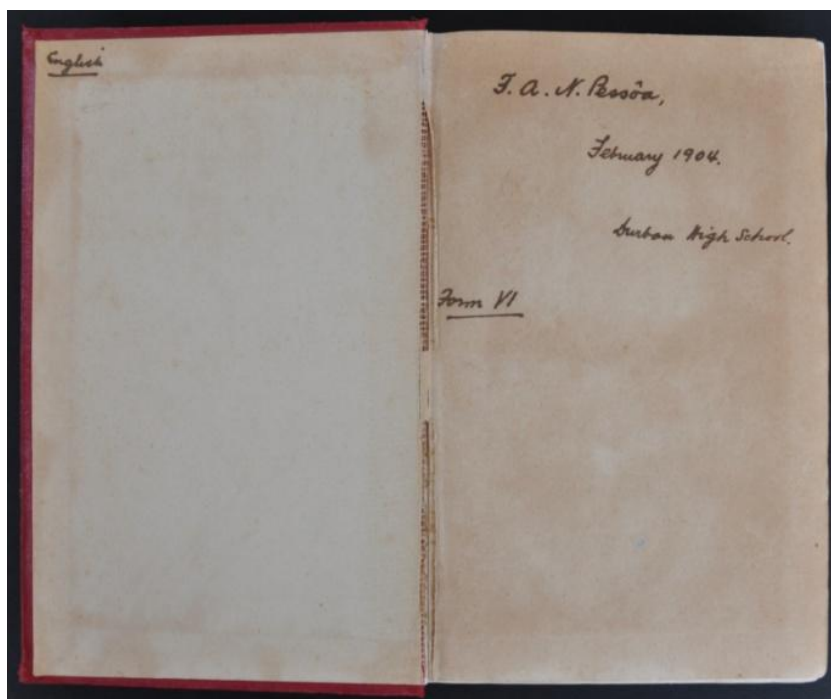 English
F. A. N. Pessôa,
February 1904.
Durban High School.
Form VI